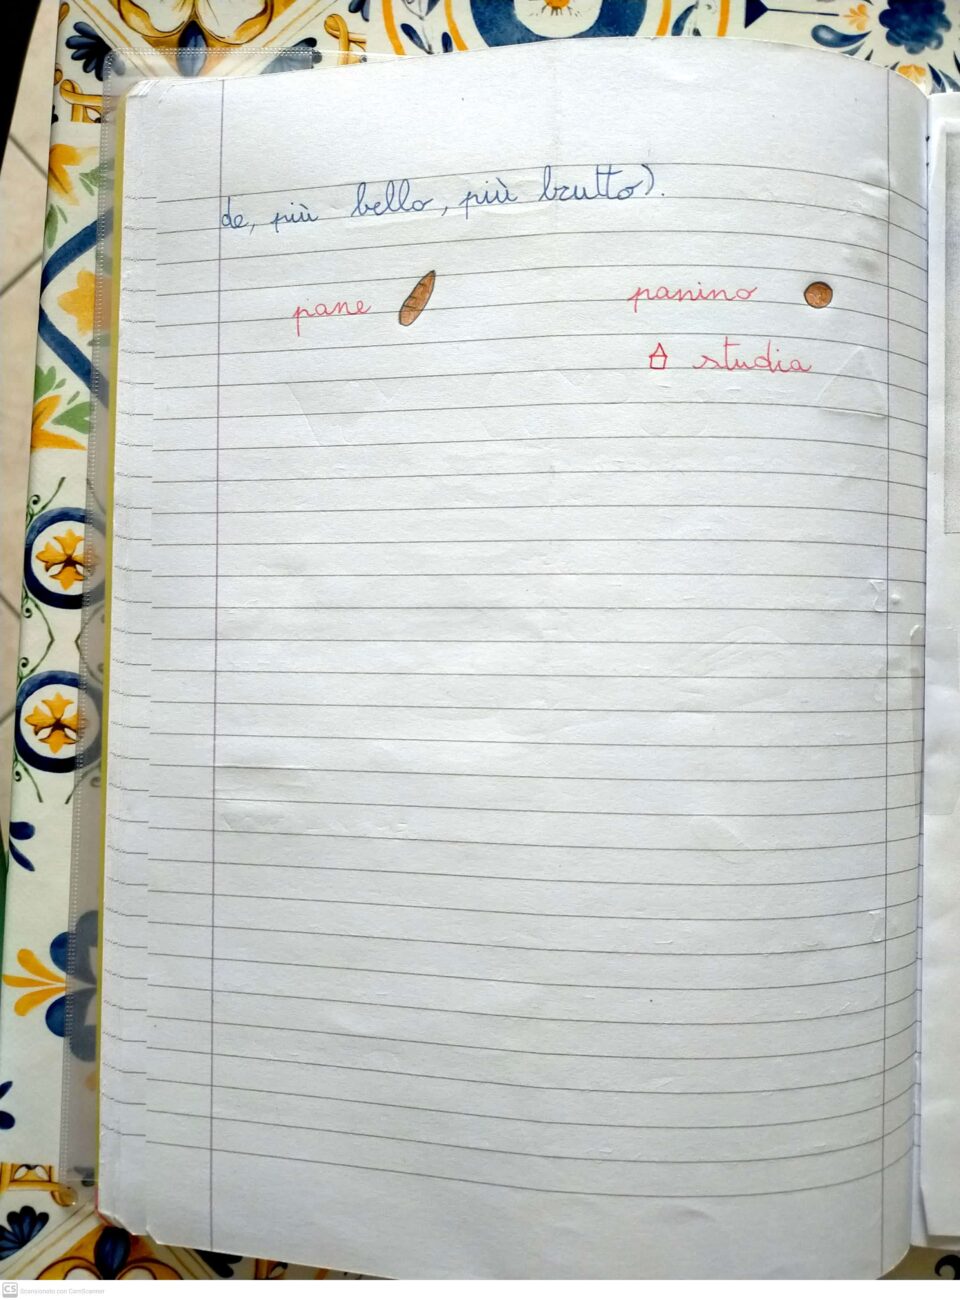 de, più bello, più brutto).
pane panino
studia
CS Scansionato con CamScanner